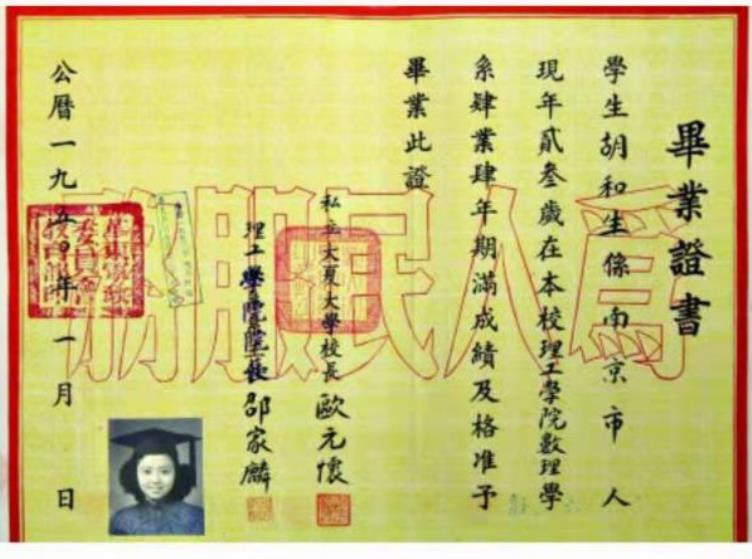 畢業證書
學生胡和生係南京市人
現年貳叁歲在本校理工學院數理學
系肄業肄年期滿成績及格准予
畢業此證
私立大夏大學校長 歐元懷
理工學院院長 邵家麟
公曆一九五〇年一月 日
為人民服務